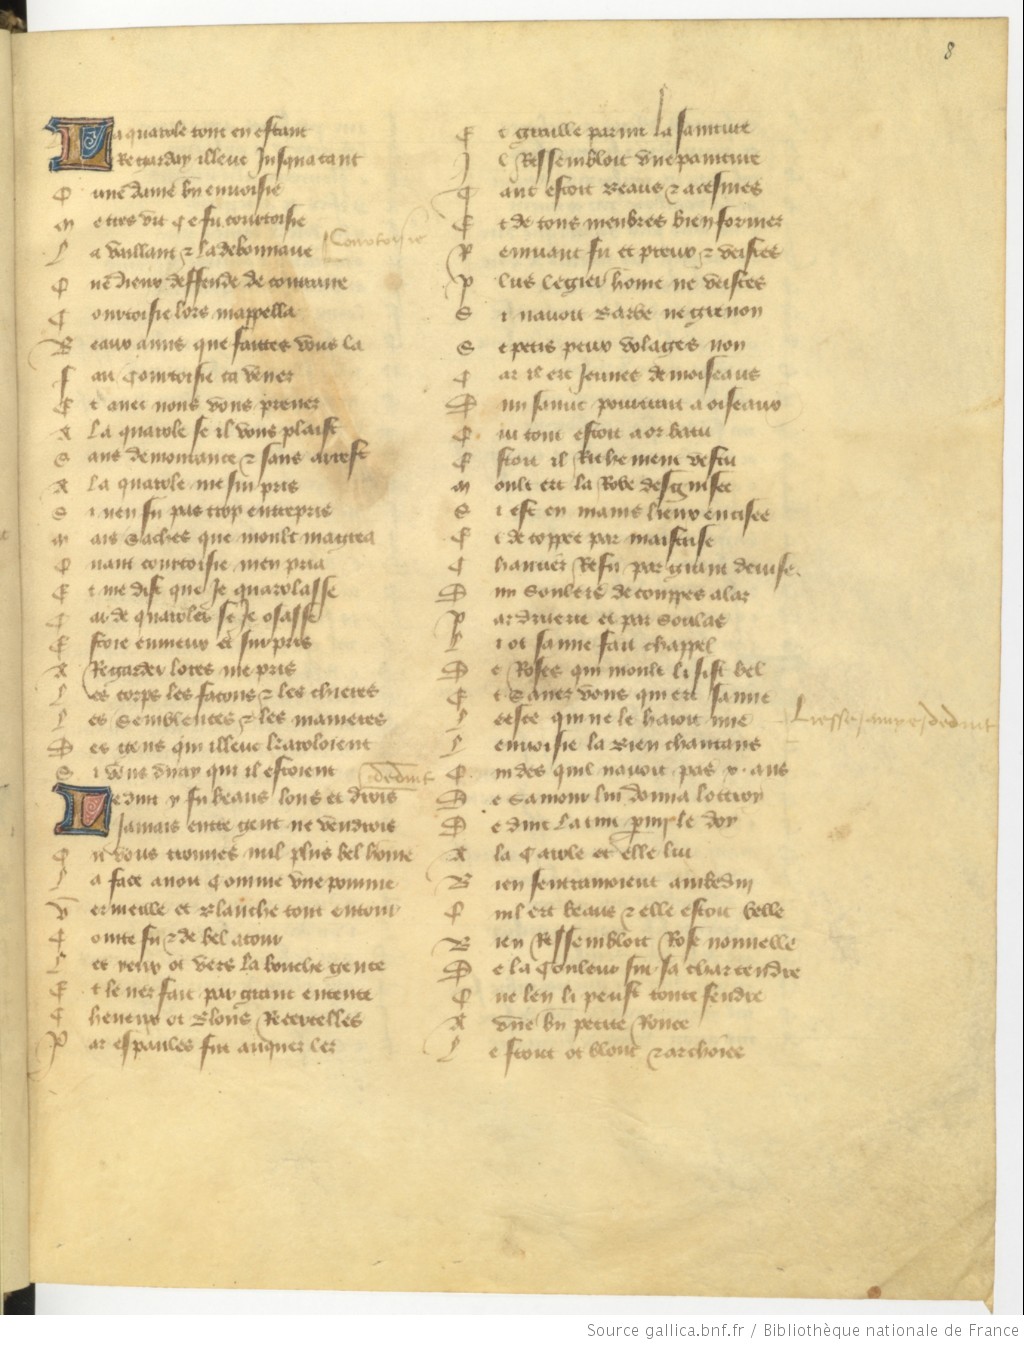 8
La quarole tout en estant
Regarday illeuc Jusqua tant
Cune dame bn enuoisie
Me tres vit Ce fu courtoisie
La vaillant & la debonnaire
Courtoisie
Que dieux deffende de contraire
Courtoisie lors mappella
Beaux amis que faittes vous la
Fait Courtoisie ca venez
Et auec nous vous prenez
A La quarole se il vous plaist
Sans demourance & sans arrest
A La quarole me sui pris
Si nen fu pas trop entrepris
Mais Saches que moult magrea
Quant courtoisie men pria
Et me dist que Je quarolasse
Car de quaroler se Je osasse
Estoie enuieux et surpris
A Regarder lores me pris
Les corps les facons & les chieres
Les Semblences & les manieres
Des gens qui illeuc karoloient
Si vous diray qui il estoient
deduit
Deduit y fu beaus lons et drois
Jamais entre gent ne vendrois
Ou vous truisses nul plus bel home
La face auoit Comme vne pomme
Vermeille et Blanche tout entour
Cointe fu & de bel atour
Les yeux ot vers La bouche gente
Et le nez fait par grant entente
Cheueux ot Blons Recercelles
Par espaules fut auquez lez
Et graille parmi la sainture
Il Ressembloit vne painture
Tant estoit Beaus & acesmes
Et de tous menbres bien formez
Remuant fu et preux & vistes
Plus legier home ne veistes
Si nauoit Barbe ne grenon
Se petis peux volages non
Car il ert Jeunes demoiseaus
Dun samit pourtrait a oiseaux
Qui tout estoit a or batu
Estoit il Richement vestu
Moult ert la Robe desguisee
Si est en mains lieux encisee
Et decoppee par maistrise
Chauciez Refu par grant deuise
Dun Soulers decouppes a laz
Par druerie et par Soulas
Li ot samie fait chappel
De Roses qui moult li sist bel
Et Sauez vous qui ert samie
Leesce qui ne le haioit mie
Liesse amye deduit
Lenuoisie la Bien chantans
Qui des quil nauoit pas x. ans
De Samour lui donna lottroy
Deduit La tint par my le doy
A la Carole et elle lui
Bien sentramoient ambedui
Cuil ert beaus & elle estoit belle
Bien Ressembloit Rose nouuelle
De la Couleur sur sa char tendre
Que len li peust toute fendre
A vne bn petite Ronce
Le front ot blont & archoiee